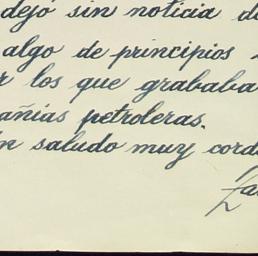 dejó sin noticia de
algo de principios
los que grababa
añias petroleras.
n saludo muy cord